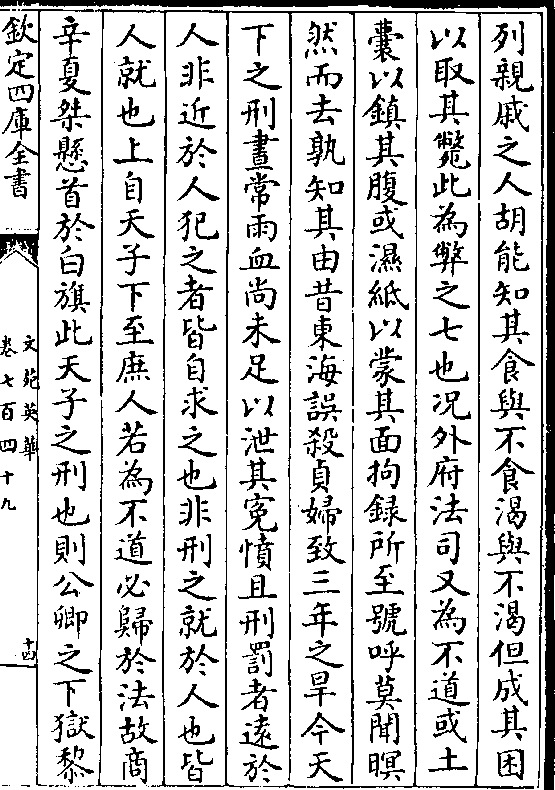 列親戚之人胡能知其食與不食渴與不渴但成其困
以取其斃此為弊之七也况外府法司又為不道或土
囊以鎮其腹或濕紙以蒙其面拘録所至號呼莫聞暝
然而去孰知其由昔東海誤殺貞婦致三年之旱今天
下之刑晝常雨血尚未足以泄其寃憤且刑罰者逺於
人非近於人犯之者皆自求之也非刑之就於人也皆
人就也上自天子下至庶人若為不道必歸於法故商
辛夏桀懸首於白旗此天子之刑也則公卿之下獄黎
欽定四庫全書
文苑英華
卷七百四十九
十四